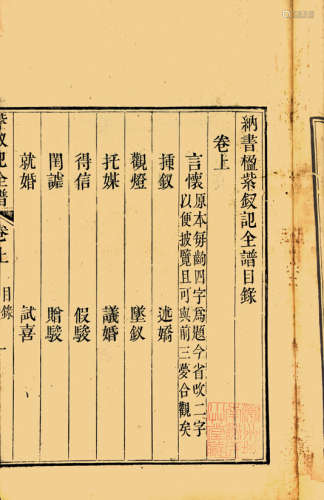 納書楹紫釵記全譜目錄
卷上
言懷 原本每齣四字爲題今省改二字
以便披覽且可與前三夢合觀矣
插釵 述嬌
觀燈 墜釵
托媒 議婚
得信 假駿
閨謔 贈駿
就婚 試喜
紫釵記全譜 卷上 目錄 一